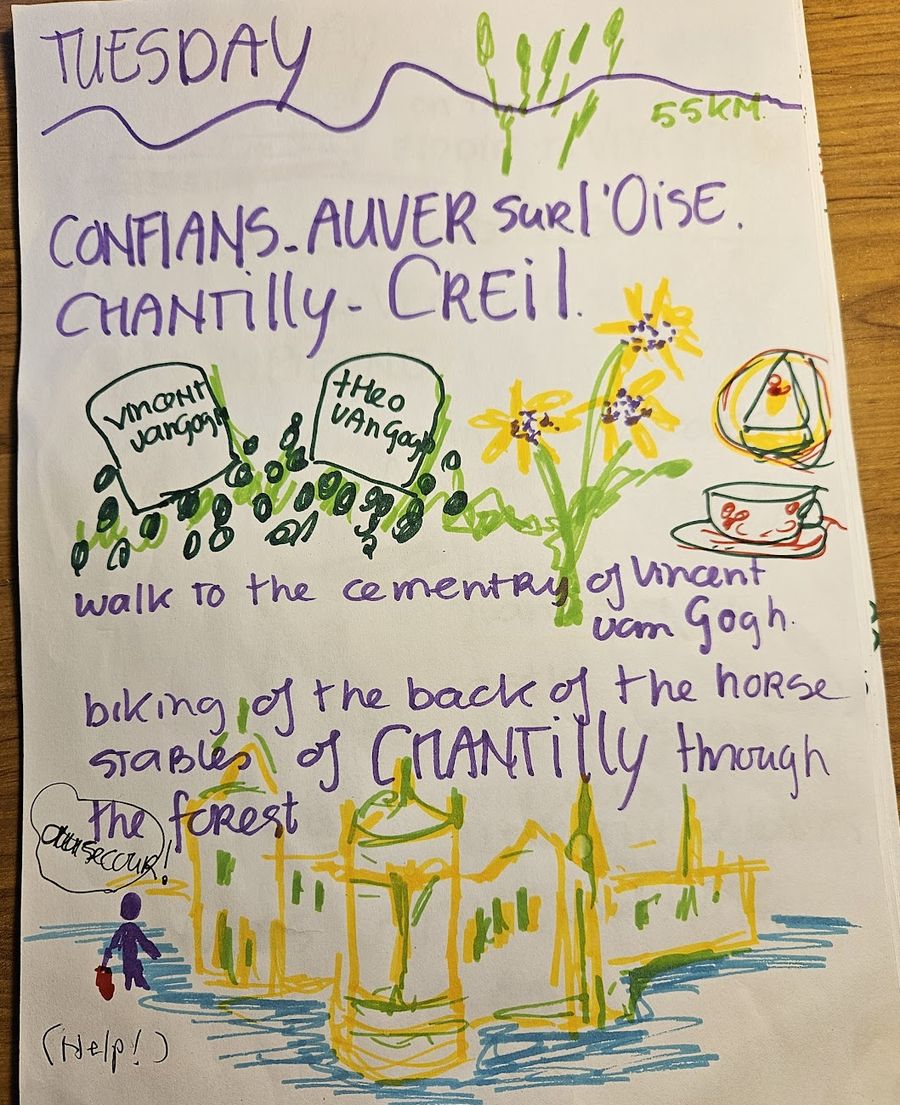 TUESDAY
55KM.
CONFlANS - AUVER sur l'OiSE.
CHANTilly - CREil.
vincent
vanGogh
tHeo
VAnGogh
walk to the cementry of Vincent
van Gogh.
biking of the back of the horse
stables of CHANTilly through
the forest
(Help!)